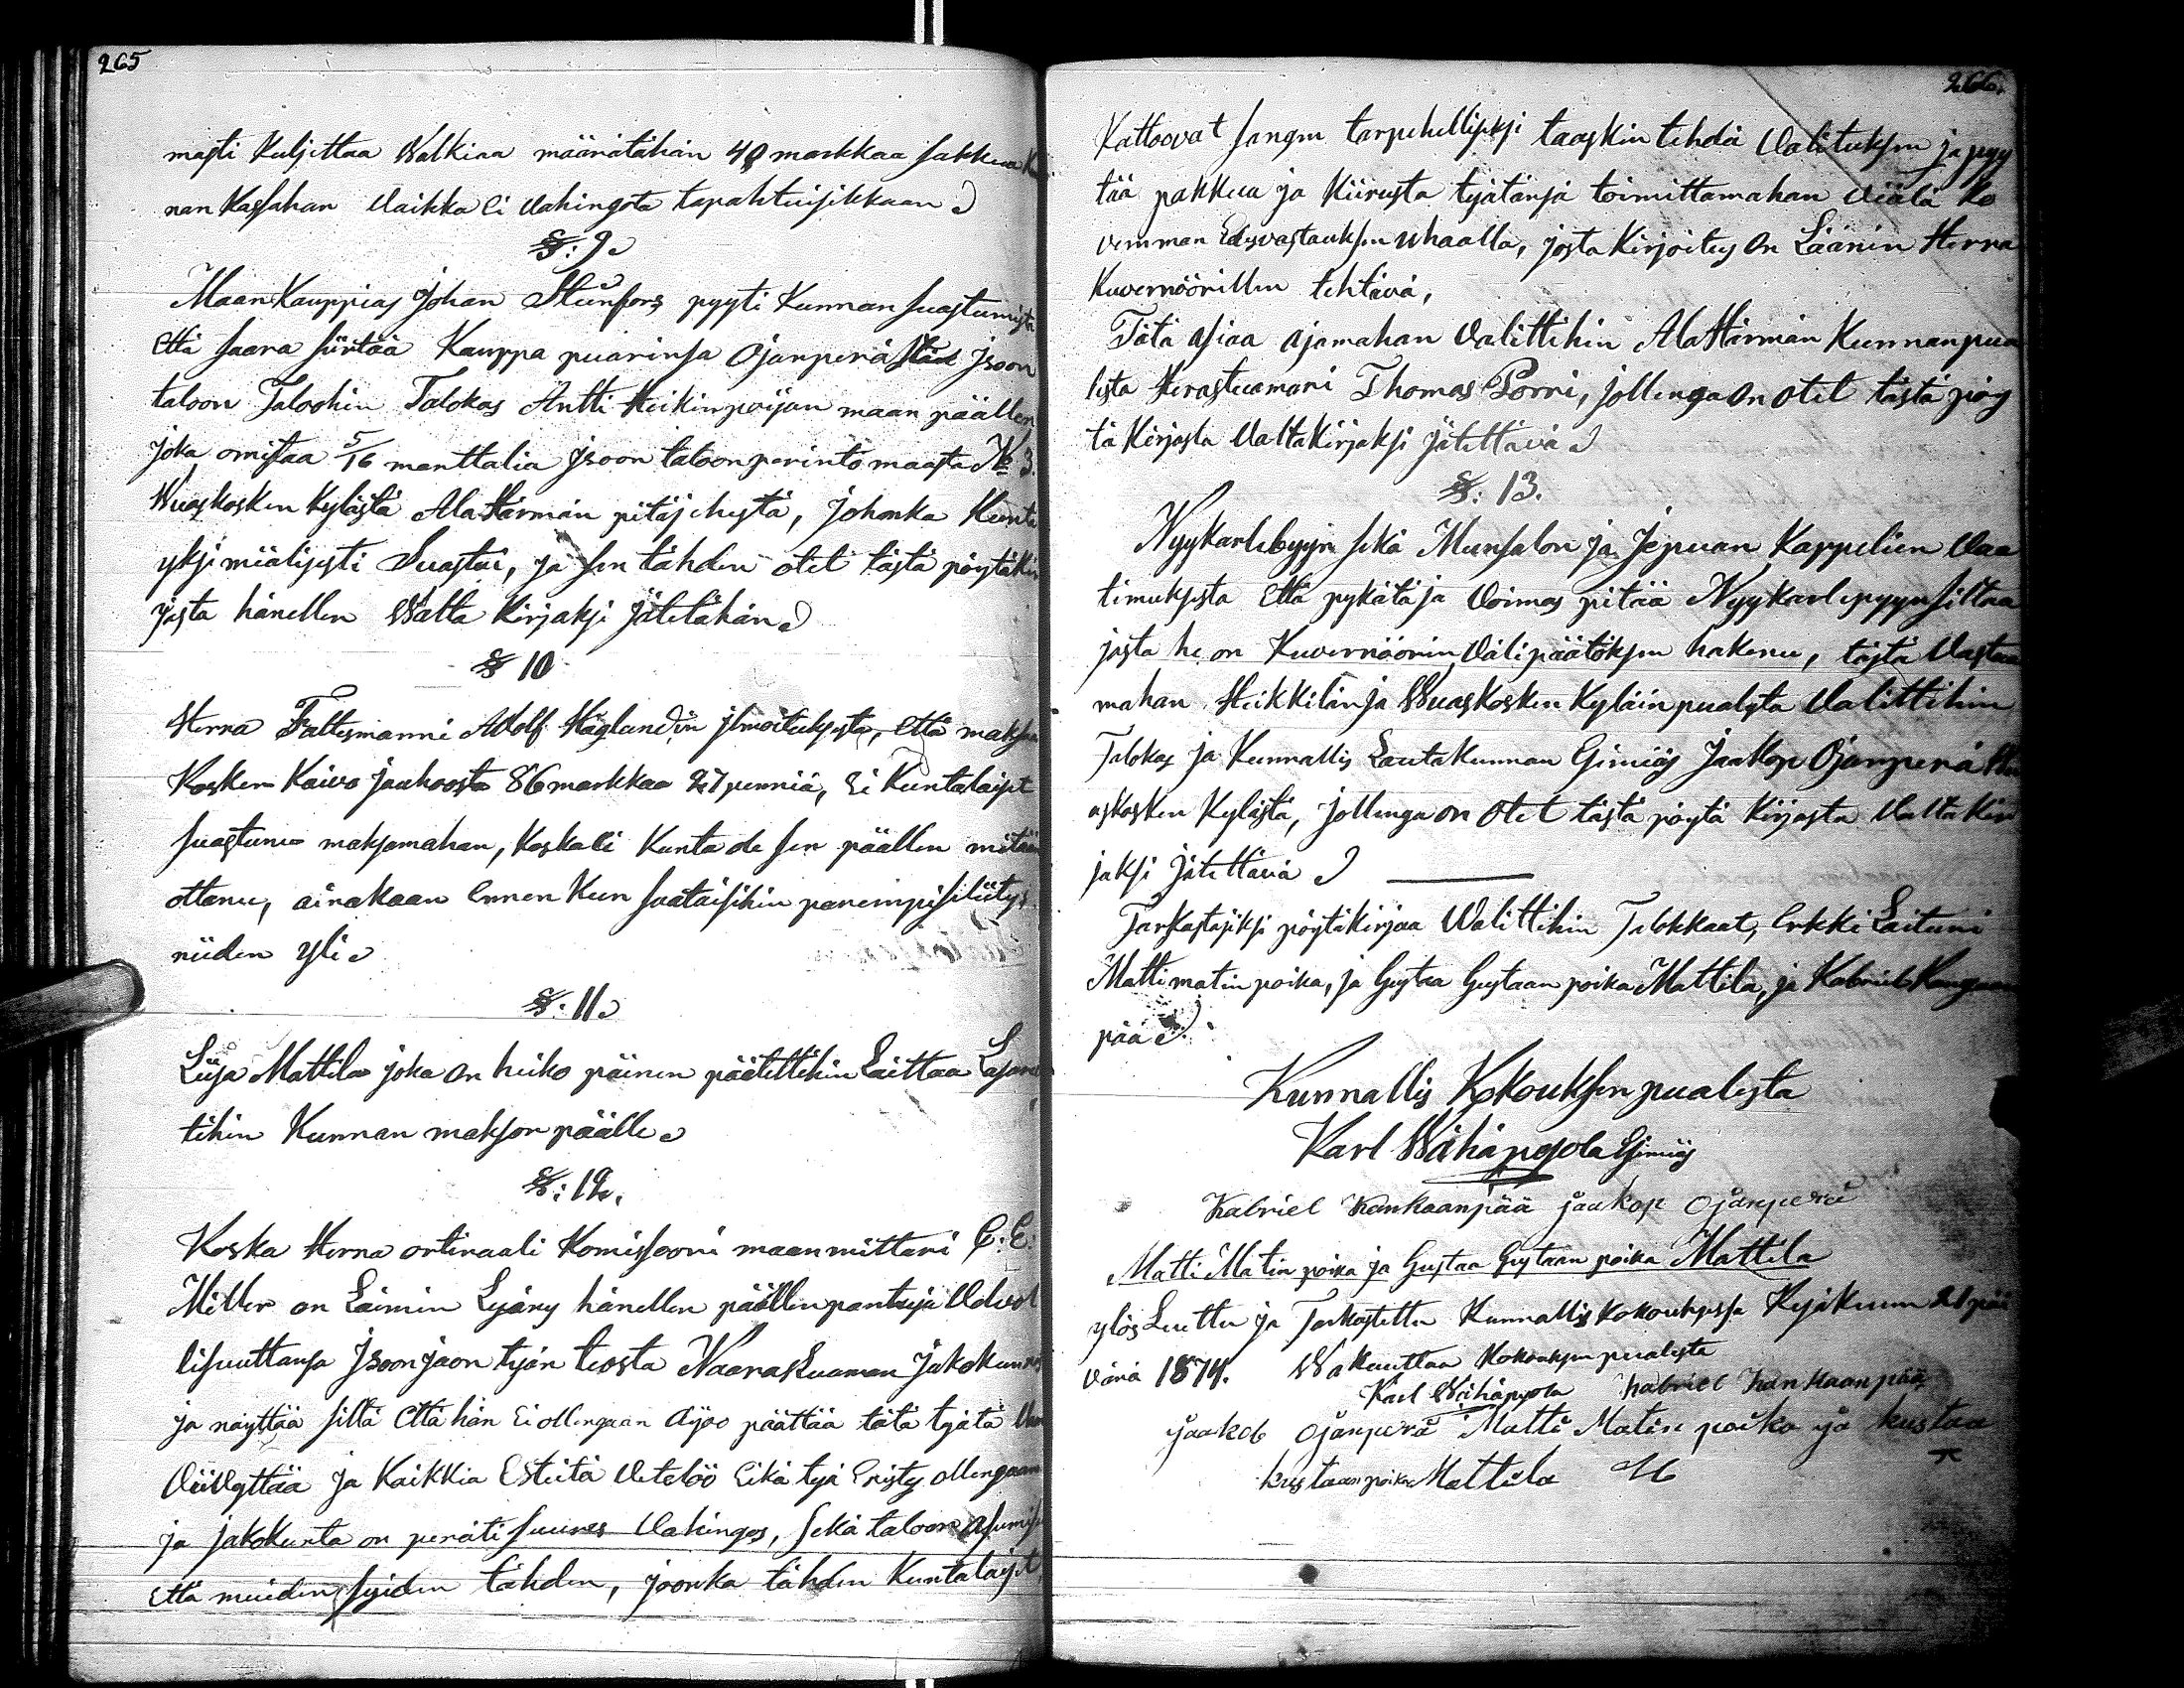 265
masti Kuljettaa Walkiaa määrätähän 40 markkaa sakkua Ku
nan Kassahan Vaikka Ei Vahingota tapahtuisikkaan
§: 9.
Maan Kauppias Johan Stenfors pyyti Kunnan suastumista
Että saara siirtää Kauppa puarinsa Ojanperä Jsoon
taloon Taloohin Talokas Antti Heikinpoijan maan päällen
Joka omistaa 5/16 manttalia Jsoon taloon perintö maasta No 3.
Wuaskosken Kylästä AlaHärmän pitäjehestä, Johonka Kunta
yksimiälisesti Suastui, ja sen tähden otet tästä pöytäkir
jasta hänellen Walta Kirjaksi Jätetähän
§ 10
Herra Faltesmanni Adolf Häglundin Jlmoituksesta, Että maksaa
Kosken Kaivo Jaakoosta 86 markkaa 27 penniä, Ei Kuntalaiset
suastunu maksamahan, Koska Ei Kunta ole sen päällen mitään
ottanu, ainakaan Ennen Kun saataisihin parempi selitys
niiden Yli
§: 11.
Liisa Mattila joka On heiko päinen päätettihin Laittaa Lasare
tihin Kunnan makson päälle
§: 12.
Koska Herra ortinaali Komissooni maanmittari C: E:
Miller on Laimin Lyäny hänellen päällen pantuja Velvol
lisuuttansa Jsoonjaon tyän teosta Naarasluaman Jakokunnas
ja näyttää siltä Että hän Ei ollengaan Ajoo päättää tätä tyätä Vaa
Viivyttää Ja Kaikkia Esteitä Vetelöö Eikä tyä Eristy ollengaan
ja jakokunta on peräti suures Vahingos, sekä taloon Asumise
Että muiden syiden tähden, joonka tähden Kuntalaiset,
266.
Kattoovat sangen tarpehelliseksi taaskin tehdä Valituksen ja pyy
tää pakkua ja Kiirusta tyätänsä toimittamahan Viälä ko
vemman Edesvastauksen uhaalla, josta Kirjoitus On Läänin Herra
Kuvernöörillen tehtävä,
Tätä asiaa ajamahan Valittihin AlaHärmän Kunnanpua
lesta Herastuamari Thomas Porri, jollenga On otet tästä pöy
tä Kirjasta Valtakirjaksi Jätettävä
§: 13.
Nyykarlebyyn sekä Munsalon ja Jepuan Kappelien Vaa
timuksesta Että pykätä ja Voimas pitää Nyykarlepyyn siltaa
josta he on Kuvernöörin Välipäätöksen hakenu, tästä Vastaa
mahan Heikkilän ja Wuaskosken Kyläin pualesta Valittihin
Talokas ja Kunnallis Lautakunnan Esimiäs Jaakop Ojanperä Wu
askosken Kylästä, jollenga on Otet tästä pöytä Kirjasta Valta kir
jaksi Jätettävä
Tarkastajiksi pöytäkirjaa Valittihin Talokkaat, Erkki Laituri
Matti matin poika, ja Gustaa Gustaan poika Mattila, ja Kabriel Kangaan
pää
Kunnallis Kokouksen pualesta
Karl Wähäpyola Esimiäs
Kabriel Kankaanpää jaakop Ojanperä
Matti Matin poika ja Gustaa Gustaan poika Mattila
ylös Luettu ja Tarkastettu Kunnallis kokouksessa Kesäkuun 21 päi
vänä 1874. Wakuuttaa Kokouksen pualesta
Karl Wähäpyola Kabriel Kankaanpää
jaakob Ojanperä Matti Matin poika ja kustaa
kustaan poika Mattila